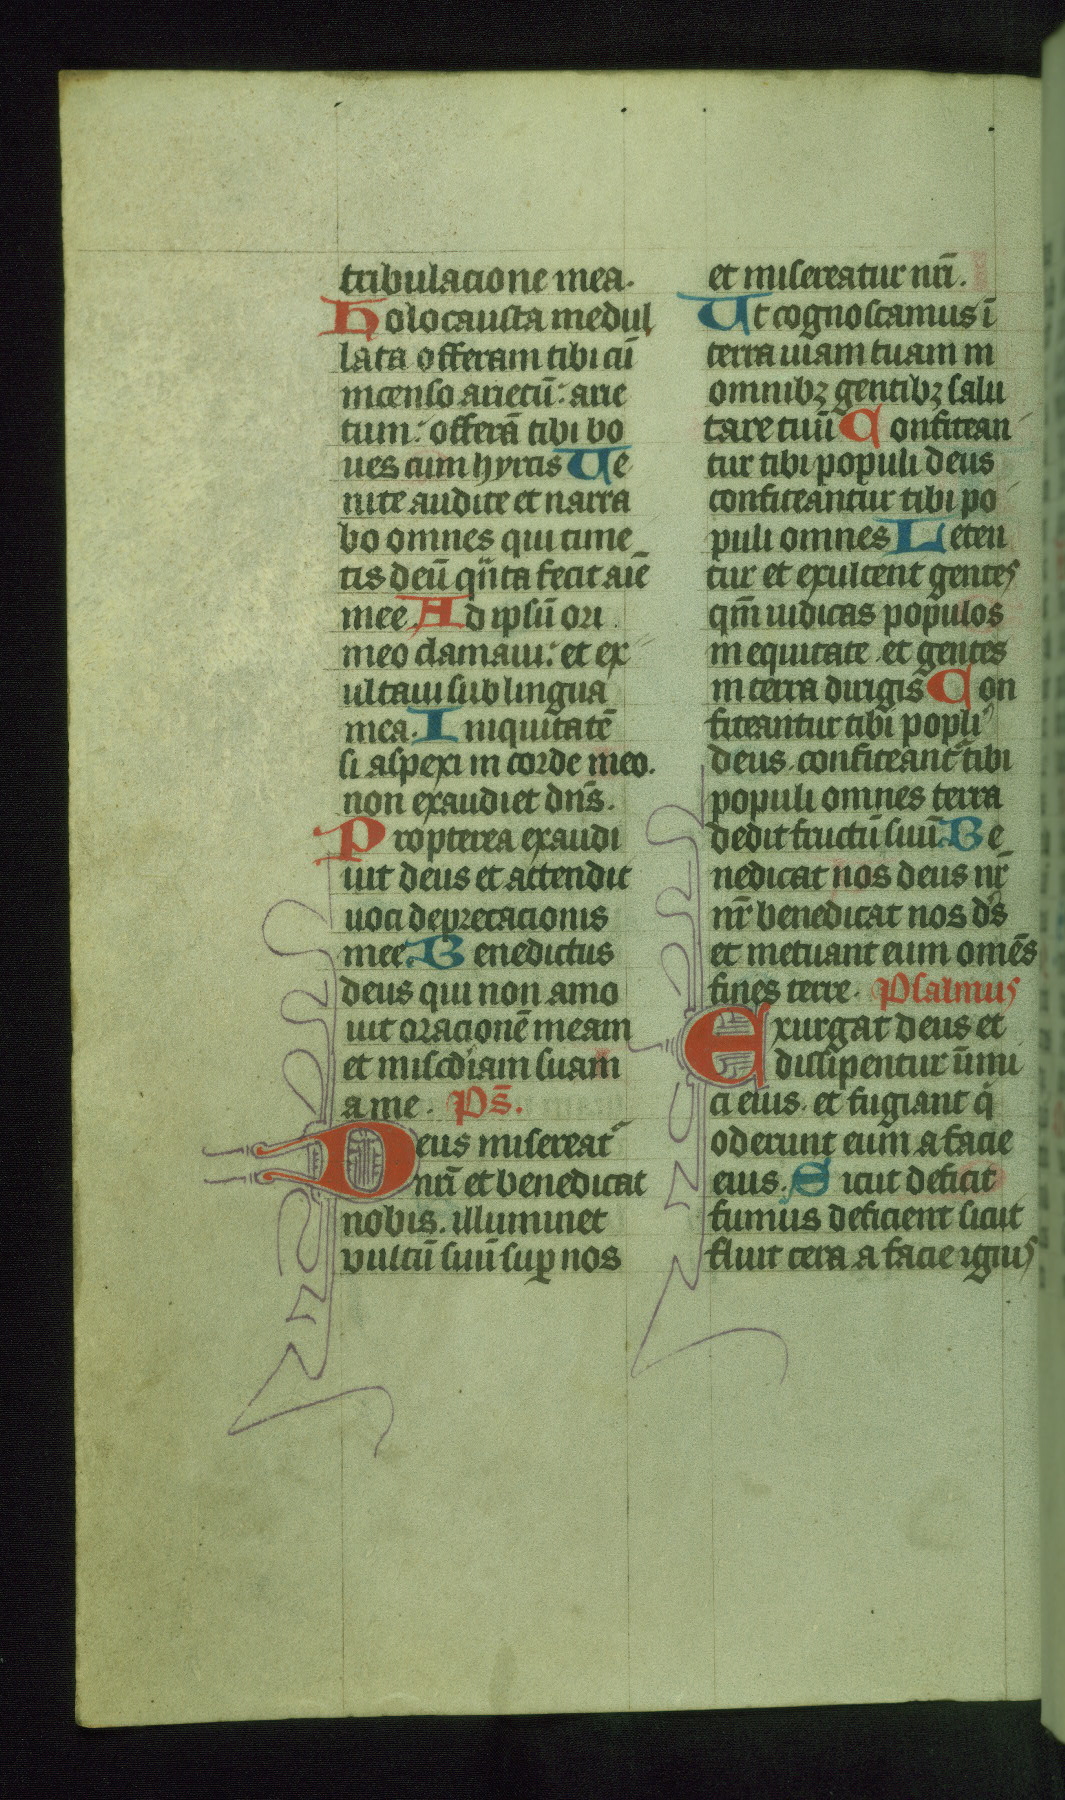 tribulacione mea.
Holocausta medul
lata offeram tibi cū
incenso arietū: arie
tum: offerā tibi bo
ues cum hyrcis Ue
nite audite et narra
bo omnes qui time
tis deū qūta fecit aīe
mee. Ad ipsū ori
meo clamaui: et ex
ultaui sub lingua
mea. Iniquitatē
si aspexi in corde meo.
non exaudiet dn̄s.
Propterea exaudi
uit deus et attendit
uoci deprecacionis
mee. Benedictus
deus qui non amo
uit oracionē meam
et misc̄diam suam
a me. Ps̄.
Deus misereat᷑
nr̄i et benedicat
nobis. illuminet
vultū suū sup̱ nos
et misereatur nr̄i.
Ut cognoscamus ī
terra uiam tuam in
omnibꝫ gentibꝫ salu
tare tuū Confitean
tur tibi populi deus
confiteantur tibi po
puli omnes Leten
tur et exultent gentes
qm̄ iudicas populos
in equitate et gentes
in terra dirigis Con
fiteantur tibi popli
deus. confiteant᷑ tibi
populi omnes terra
dedit fructū suū Be
nedicat nos deus nr̄
nr̄ benedicat nos ds̄
et metuant eum omēs
fines terre. Psalmus
Exurgat deus et
dissipentur īimi
ci eius. et fugiant q̇
oderunt eum a facie
eius. Sicut deficit
fumus deficient sicut
fluit cera a facie ignis